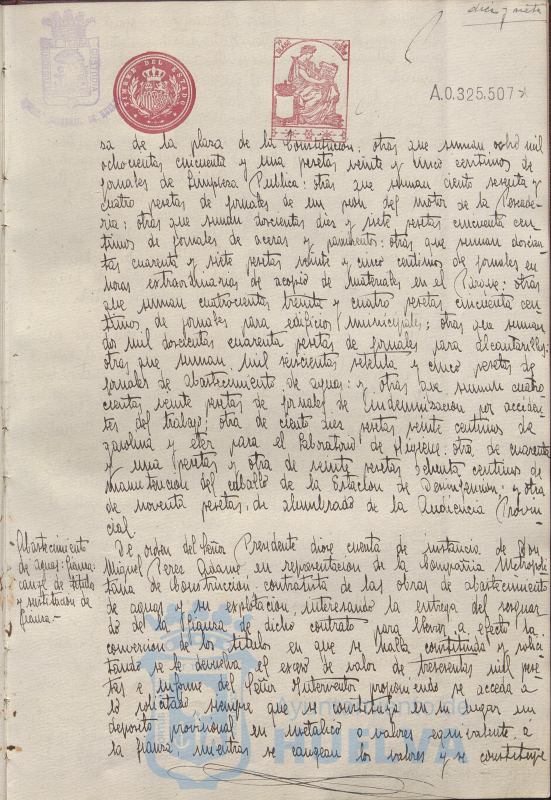 diez y siete
TIMBRE DEL ESTADO
A.0.325.507
sa de la plaza de la Constitucion: otras que suman ocho mil
ochocientas cincuenta y una pesetas veinte y cinco centimos de
jornales de Limpieza Publica: otras que suman ciento sesenta y
cuatro pesetas de jornales de un peon del motor de la Pescade-
ria: otras que suman doscientas diez y siete pesetas cincuenta cen-
timos de jornales de aceras y pavimento: otras que suman doscien-
tas cuarenta y siete pesetas veinte y cinco centimos de jornales en
horas extraordinarias de acopio de materiales en el Parque: otras
que suman cuatrocientas treinta y cuatro pesetas cincuenta cen-
timos de jornales para edificios municipales: otras que suman
dos mil doscientas cuarenta pesetas de jornales para alcantarillas:
otras que suman mil seiscientas setenta y cinco pesetas de
jornales de abastecimiento de aguas: y otras que suman cuatro-
cientas veinte pesetas de jornales de indemnizacion por acciden-
tes del trabajo: otra de ciento diez pesetas veinte centimos de
gasolina y eter para el Laboratorio de Higiene: otra de cuarenta
y una pesetas y otra de veinte pesetas ochenta centimos de
manutencion del caballo de la Estacion de Desinfeccion: y otra
de noventa pesetas, de alumbrado de la Audiencia Provin-
cial.
Abastecimiento
de aguas: fianza:
cange de titulos
y sustitucion de
fianza.-
De orden del Señor Presidente diose cuenta de instancia de Don
Miguel Perez en representacion de la Compañia Metropoli-
tana de Construccion contratista de las obras de abastecimiento
de aguas y su explotacion, interesando la entrega del resguar-
do de la fianza de dicho contrato para llevar a efecto la
conversion de los titulos en que se halla constituida y solici-
tando se le devuelva el exceso de valor de trescientas mil pese-
tas e informe del Señor Interventor proponiendo se acceda a
lo solicitado siempre que se constituya en su lugar un
deposito provisional en metalico o valores equivalente a
la fianza mientras se cangean los valores y se constituye
Ayuntamiento de
HUELVA